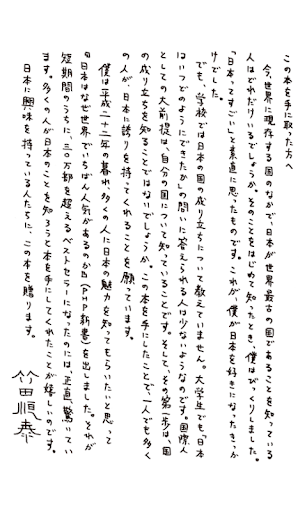 この本を手に取った方へ
今、世界に現存する国のなかで、日本が世界最古の国であることを知っている
人はどれだけいるでしょうか。そのことをはじめて知ったとき、僕はびっくりしました。
「日本ってすごい」と素直に思ったものです。これが、僕が日本を好きになったきっか
けでした。
でも、学校では日本の国の成り立ちについて教えていません。大学生でも「日本
はいつどのようにできたか」の問いに答えられる人は少ないようなのです。国際人
としての大前提は、自分の国について知っていることです。そして、その第一歩は、国
の成り立ちを知ることではないでしょうか。この本を手にしたことで、一人でも多く
の人が、日本に誇りを持ってくれることを願っています。
僕は平成二十二年の暮れ、多くの人に日本の魅力を知ってもらいたいと思って
『日本はなぜ世界でいちばん人気があるのか』(PHP新書)を出しました。それが
短期間のうちに、三〇万部を超えるベストセラーになったのには、正直、驚いてい
ます。多くの人が日本のことを知ろうと本を手にしてくれたことが嬉しいのです。
日本に興味を持っている人たちに、この本を贈ります。
竹田恒泰